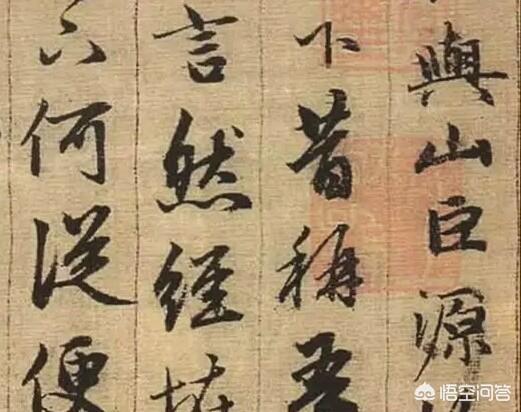 與山巨源
下昔稱吾
言然經恠
下何從便
悟空问答